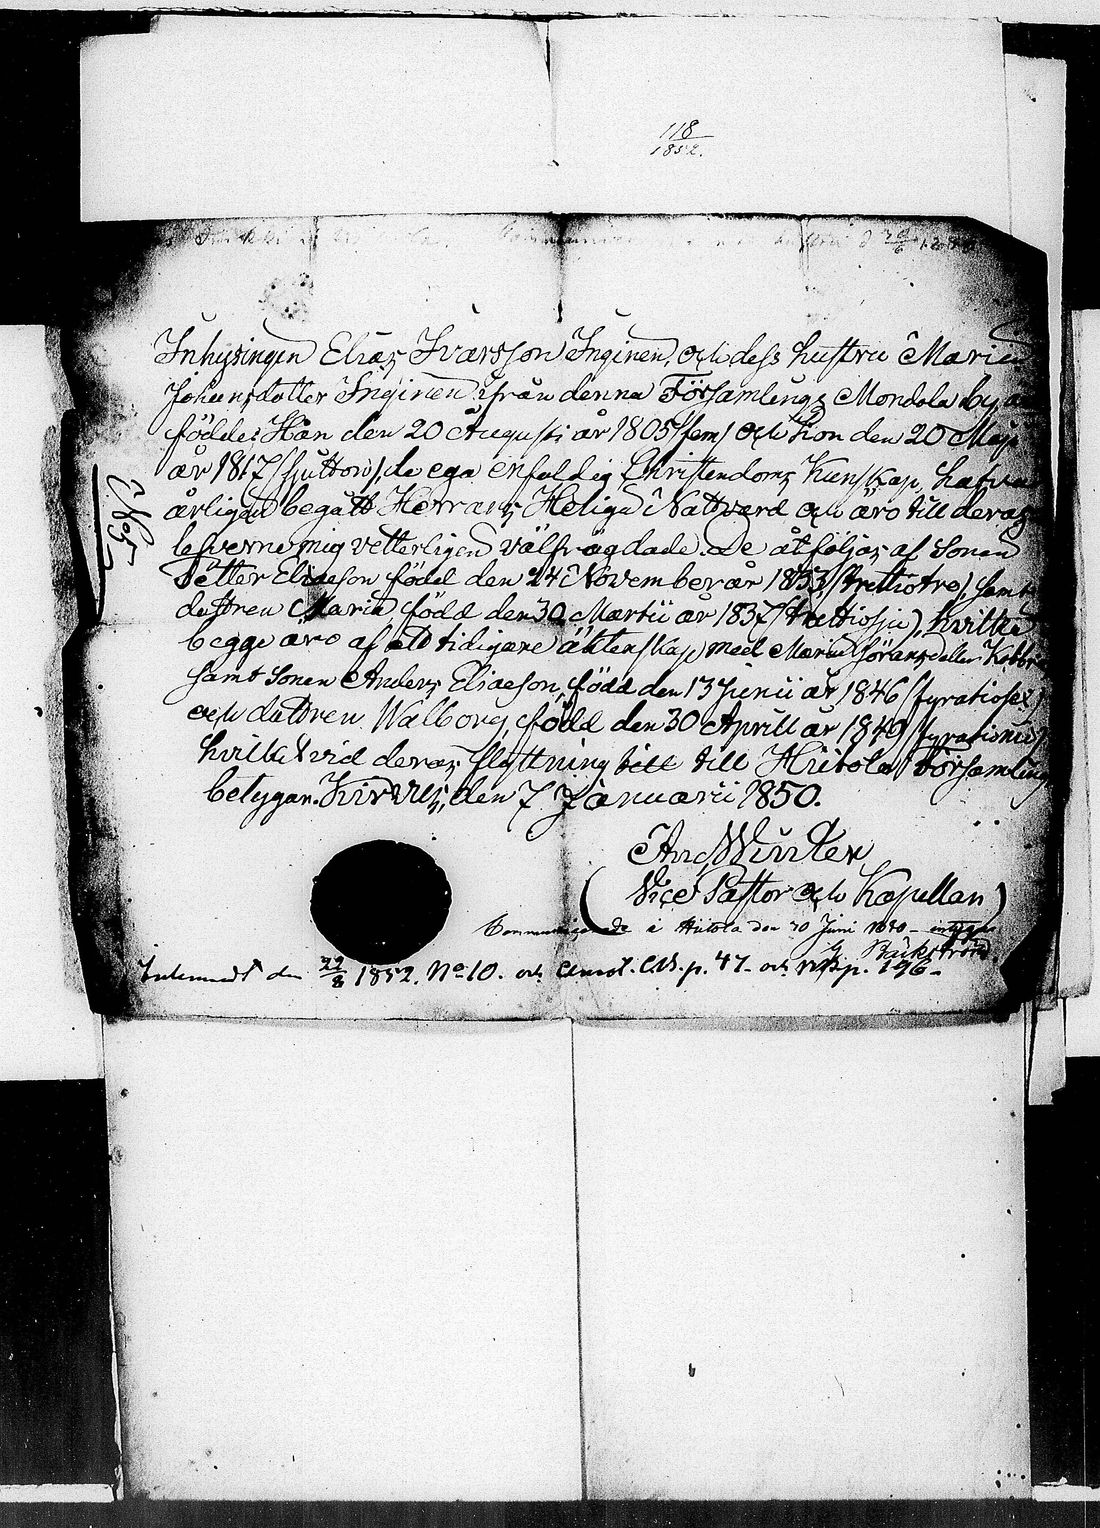 118
1852.
Inhysingen Elias Ivarsson Inginen, och dess hustru Maria
Johansdotter Inginen ifrån denna Församlings Mondola by, är
födde: Han den 20 Augusti år 1805 (fem) och Hon den 20 Maji
år 1817 (sjutton), de ega enfaldig Christendoms Kunskap, hafva
årligen begått Herrans Heliga Nattvard och äro till deras
lefverne mig vetterligen välfrägdade. De åtföljas af Sonen
Petter Eliaeson född den 24 November år 1833 (trettiotre), samt
dottren Maria, född den 30 Martii år 1837 (trettiosju), hvilka
begge äro af ett tidigare äktenskap med Maria Göransdotter
samt Sonen Anders Eliaeson, född den 13 Junii år 1846 (fyratiosex)
och dottren Walborg, född den 30 Aprill år 1849 (fyrationio)
hvilket vid deras flyttning till till Hiitola Församling
betygar. Kirvus, den 7 Januarii 1850.
And Winter
(Vice Pastor och Kapellan)
No 5
i Hiitola den 30 Juni 1850 - intygar
G Bäckström
Inlemnadt den 22/8 1852. No 10. och p. 47. och p. 196-